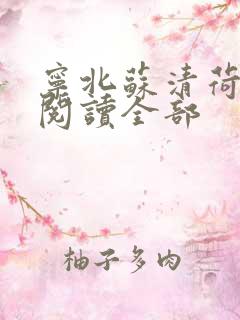 寧北蘇清荷
閱讀全部
柚子多肉